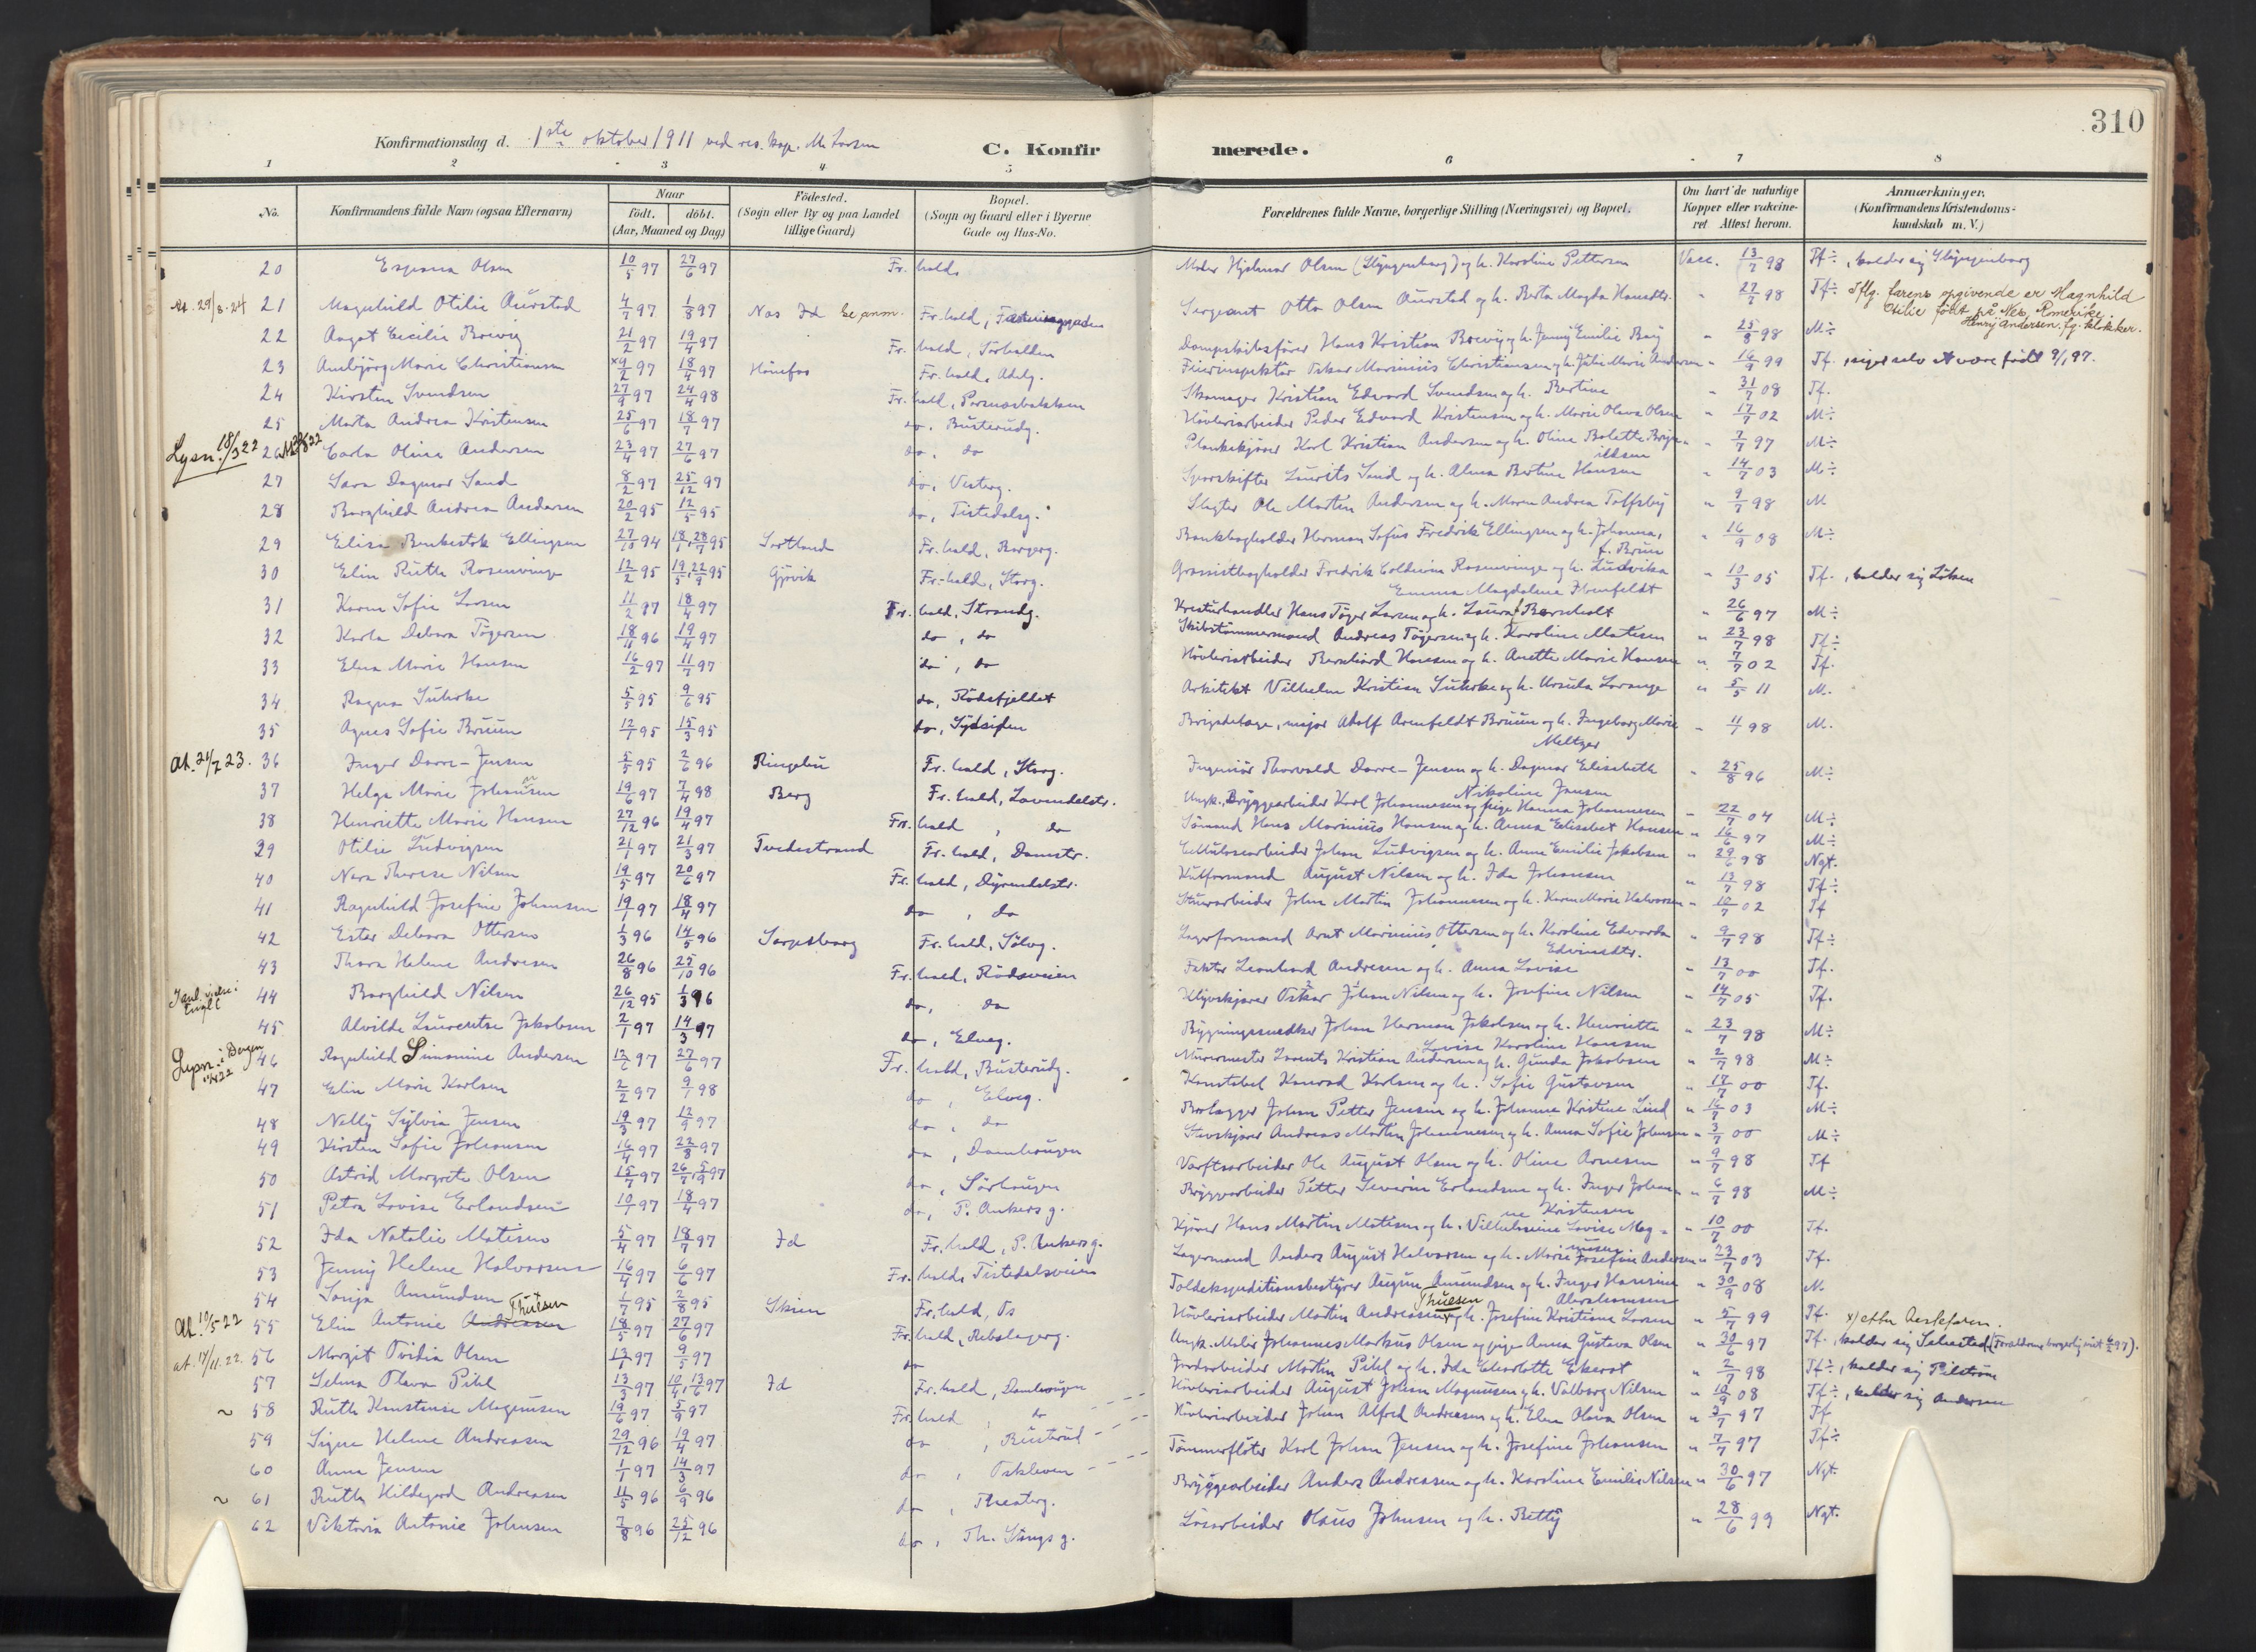 310
Konfirmationsdag d. 1ste oktober 1911 ved res. kap. M. Larsen
C. Konfirmerede.
1 2 3 4 5 6 7 8
No.
Konfirmandens fulde Navn (ogsaa Efternavn)
Naar
født. døbt.
(Aar, Maaned og Dag)
Fødested.
(Sogn eller By og paa Landet
tillige Gaard)
Bopæl.
(Sogn og Gaard eller i Byerne
Gade og Hus-No.
Forældrenes fulde Navne, borgerlige Stilling (Næringsvei) og Bopæl.
Om havt de naturlige
Kopper eller vaccineret
Attest herom.
Anmærkninger.
(Konfirmandens Kristendomskundskab
m. V.)
20 Olsen 10/5 97 27/6 97 Fr.hald. Hjalmar Olsen og h. Karoline Pettersen Vacc. 13/7 98 Tf÷, kalder sig
At. 29/8-24 21 Magnhild Otilie Aurstad 4/7 97 1/8 97 Fr.hald, Sergeant Otto Olsen Aurstad og h. Berta Magda Hansdtr. " 27/7 98 Tf÷ Iflg. farens opgivende er Magnhild
Otilie født på Nes, Romerike.
Henry Andersen. fg. klokker.
22 Aagot Cecilie 21/2 97 19/4 97 Fr.hald, Dampskibsfører Hans Kristian og h. Jenny Emilie " 25/8 98 M÷
23 Marie Christiansen 9/2 97 18/4 97 Hønefos Fr.hald, Oskar Marinius Christiansen og h. Julie Marie Andersen " 16/9 99 Tf. siger selv at være født 9/1 97.
24 Kirsten Svendsen 27/9 97 24/4 98 Fr.hald, Skomager Kristian Edvard Svendsen og h. Bertine " 31/7 08 Tf.
25 Marta Andrea Kristensen 25/6 97 18/7 97 do, Busterudg. Høvleriarbeider Peder Edvard Kristensen og h. Marie Olava Olsen " 17/7 02 M÷
Lysn. 18/3 22 26 Carla Oline Andersen 23/4 97 27/6 97 do, do Plankekjører Karl Kristian Andersen og h. Oline Bolette " 7/7 97 M÷
27 Sara Dagmar Sand 8/2 97 25/12 97 do, Vesterg. Sporskifter Laurits Sand og h. Alma Bertine Hansen " 14/7 03 M÷
28 Borghild Andrea Andersen 20/2 95 12/5 95 do, Tistedalsg. Slagter Ole Martin Andersen og h. Maren Andrea " 9/7 98 M
29 Elisa Benkestok Ellingsen 27/10 94 18/1, 28/7 95 Sortland Fr.hald, Borgerg. Bankbogholder Herman Sofus Fredrik Ellingsen og h. Johanna,
f. Bruun " 16/9 08 M÷
30 Elin Ruth Rosenvinge 12/2 95 19/5, 22/9 95 Gjøvik Fr.hald, Storg. Grossistbogholder Fredrik Coldevin Rosenvinge og h. Ludvika
Emma Magdalene " 10/3 05 Tf., kalder sig Løken
31 Karen Sofie Larsen 11/2 97 18/4 97 Fr.hald, Strandg. Hans Tøger Larsen og h. Laura " 26/6 97 M÷
32 Karla Debora Tøgersen 18/11 96 19/4 97 do, do Skibstømmermand Andreas Tøgersen og h. Karoline Matisen " 23/7 98 Tf÷
33 Elna Marie Hansen 16/2 97 11/7 97 do, do Høvleriarbeider Bernhard Hansen og h. Anette Marie Hansen " 7/7 02 Tf.
34 Ragna Suhrke 5/5 95 9/6 95 do, Rødsfjeldet Arkitekt Vilhelm Kristian Suhrke og h. Ursula Lorange " 5/5 11 M.
35 Agnes Sofie Bruun 12/1 95 15/3 95 do, Sydsiden Brigadelæge, major Adolf Arenfeldt Bruun og h. Ingeborg Marie
Meltzer " 11/7 98 M.
At. 21/7 23. 36 Inger Darre-Jensen 5/5 95 2/6 96 Ringebu Fr.hald, Storg. Ingeniør Thorvald Darre-Jensen og h. Dagmar Elisabeth
Nikoline Jensen " 25/8 96 M÷
37 Helga Marie Johansen 19/6 97 7/4 98 Berg Fr.hald, Lavendelstr. Ungk. Bryggearbeider Karl Johannesen og pige Hanna Johannesen " 22/7 04 M÷
38 Henriette Marie Hansen 27/12 96 19/4 97 Fr.hald, do Sømand Hans Marinius Hansen og h. Anna Elisabet Hansen " 16/6 97 M÷
39 Otilie Ludvigsen 21/1 97 21/3 97 Tvedestrand Fr.hald, Damstr. Cellulosearbeider Johan Ludvigsen og h. Anne Emilie Jakobsen " 29/6 98 Ngt.
40 Nora Therese Nilsen 19/5 97 20/6 97 Fr.hald, Dyrendalstr. Kulformand August Nilsen og h. Ida Johansen " 13/7 98 Tf÷
41 Ragnhild Josefine Johansen 19/1 97 18/4 97 do, do John Martin Johannesen og h. Karen Marie Halvorsen " 10/7 02 Tf
42 Ester Debora Ottersen 1/3 96 14/5 96 Sarpsborg Fr.hald, Sølvg. Lagerformand Arnt Marinius Ottersen og h. Karoline Edvarda
Edvinsdtr. " 9/7 98 Tf÷
43 Thora Helene Andresen 26/8 96 25/10 96 Fr.hald, Rødsveien Faktor Leonhard Andresen og h. Anna Lovise " 13/7 00 Tf.
44 Borghild Nilsen 26/12 95 1/3 96 do, do Oskar Johan Nilsen og h. Josefine Nilsen " 14/7 05 Tf.
45 Alvilde Laurentse Jakobsen 2/1 97 14/3 97 do, Elveg. Bygningssnedker Johan Herman Jakobsen og h. Henriette
Lovise Karoline Hansen " 23/7 98 M÷
Lysn. i Bergen 46 Ragnhild Simonine Andersen 27/6 97 Fr.hald, Busterudg. Murermester Laurits Kristian Andersen og h. Gunda Jakobsen " 2/7 98 M÷
47 Elin Marie Karlsen 2/2 97 9/1 98 do, Elveg. Konstabel Konrad Karlsen og h. Sofie Gustavsen " 18/7 00 Tf.
48 Nelly Sylvia Jensen 19/3 97 12/9 97 do, do Brolægger Johan Petter Jensen og h. Johanne Kristine Lind " 14/7 03 M÷
49 Kirsten Sofie Johansen 16/4 97 22/8 97 do, Damhaugen Andreas Martin Johannesen og h. Anna Sofie Johansen " 3/7 00 M÷
50 Astrid Margrete Olsen 15/7 97 do, Sørhaugen Værftsarbeider Ole August Olsen og h. Oline Arnesen " 9/7 98 Tf
51 Petra Lovise Erlandsen 10/1 97 18/4 97 do, P. Ankers g. Bryggearbeider Petter Severin Erlandsen og h. Inger Johanne
Kristensen " 6/7 98 M÷
52 Ida Natalie Matisen 5/4 97 18/7 97 Id Fr.hald, P. Ankers g. Kjører Hans Martin Matisen og h. Vilhelmine Lovise Magnusen " 10/7 00 Tf.
53 Jenny Helene Halvorsen 16/4 97 6/6 97 Fr.hald, Tistedalsveien Lagermand Anders August Halvorsen og h. Marie Josefine Andersen " 23/7 03 Tf.
54 Sonja Amundsen 1/7 95 2/8 95 Skien Fr.hald, Os Toldekspeditionsbestyrer August Amundsen og h. Inger Hansine
Abrahamsen " 30/9 08 M.
At. 10/5-22 55 Elin Antonie Andreasen Thuesen 18/5 97 27/6 97 Fr.hald, Rebslagerg. Høvleriarbeider Martin Andreasen Thuesen og h. Josefine Kristiane Larsen " 5/7 99 Tf. x) efter
at. 17/11.22. 56 Margit Ovidia Olsen 13/1 97 9/5 97 do Ungk. Maler Johannes Markus Olsen og pige Anna Gustava Olsen " 30/6 97 Tf., kalder sig
57 Selma Olava Pihl 13/3 97 10/4, 13/6 97 Id Fr.hald, Damhaugen Jordarbeider Martin Pihl og h. Ida Charlotte Ekerot " 2/7 98 Tf÷, kalder sig Pilstrøm
~ 58 Ruth Konstanse Magnusen 19/6 97 5/9 97 Fr.hald, do Høvleriarbeider August Johan Magnusen og h. Valborg Nilsen " 10/9 08 Tf÷, kalder sig Andersen
59 Signe Helene Andreasen 29/12 96 19/4 97 do, Busterud Høvleriarbeider Johan Alfred Andreasen og h. Elen Olava Olsen " 3/7 97 Tf
60 Anna Jensen 1/1 97 14/3 97 do, Oskleven Tømmerfløter Karl Johan Jensen og h. Josefine Johansen " 7/7 97 Tf÷
~ 61 Ruth Hildegard Andreasen 11/5 96 6/9 96 do, Theaterg. Bryggearbeider Anders Andreasen og h. Karoline Emilie Nilsen " 30/6 97 Ngt.
62 Viktoria Antonie Johnsen 7/8 96 25/12 96 do, Th. Stangs g. Løsarbeider Olaus Johnsen og h. Betty " 28/6 99 Ngt.